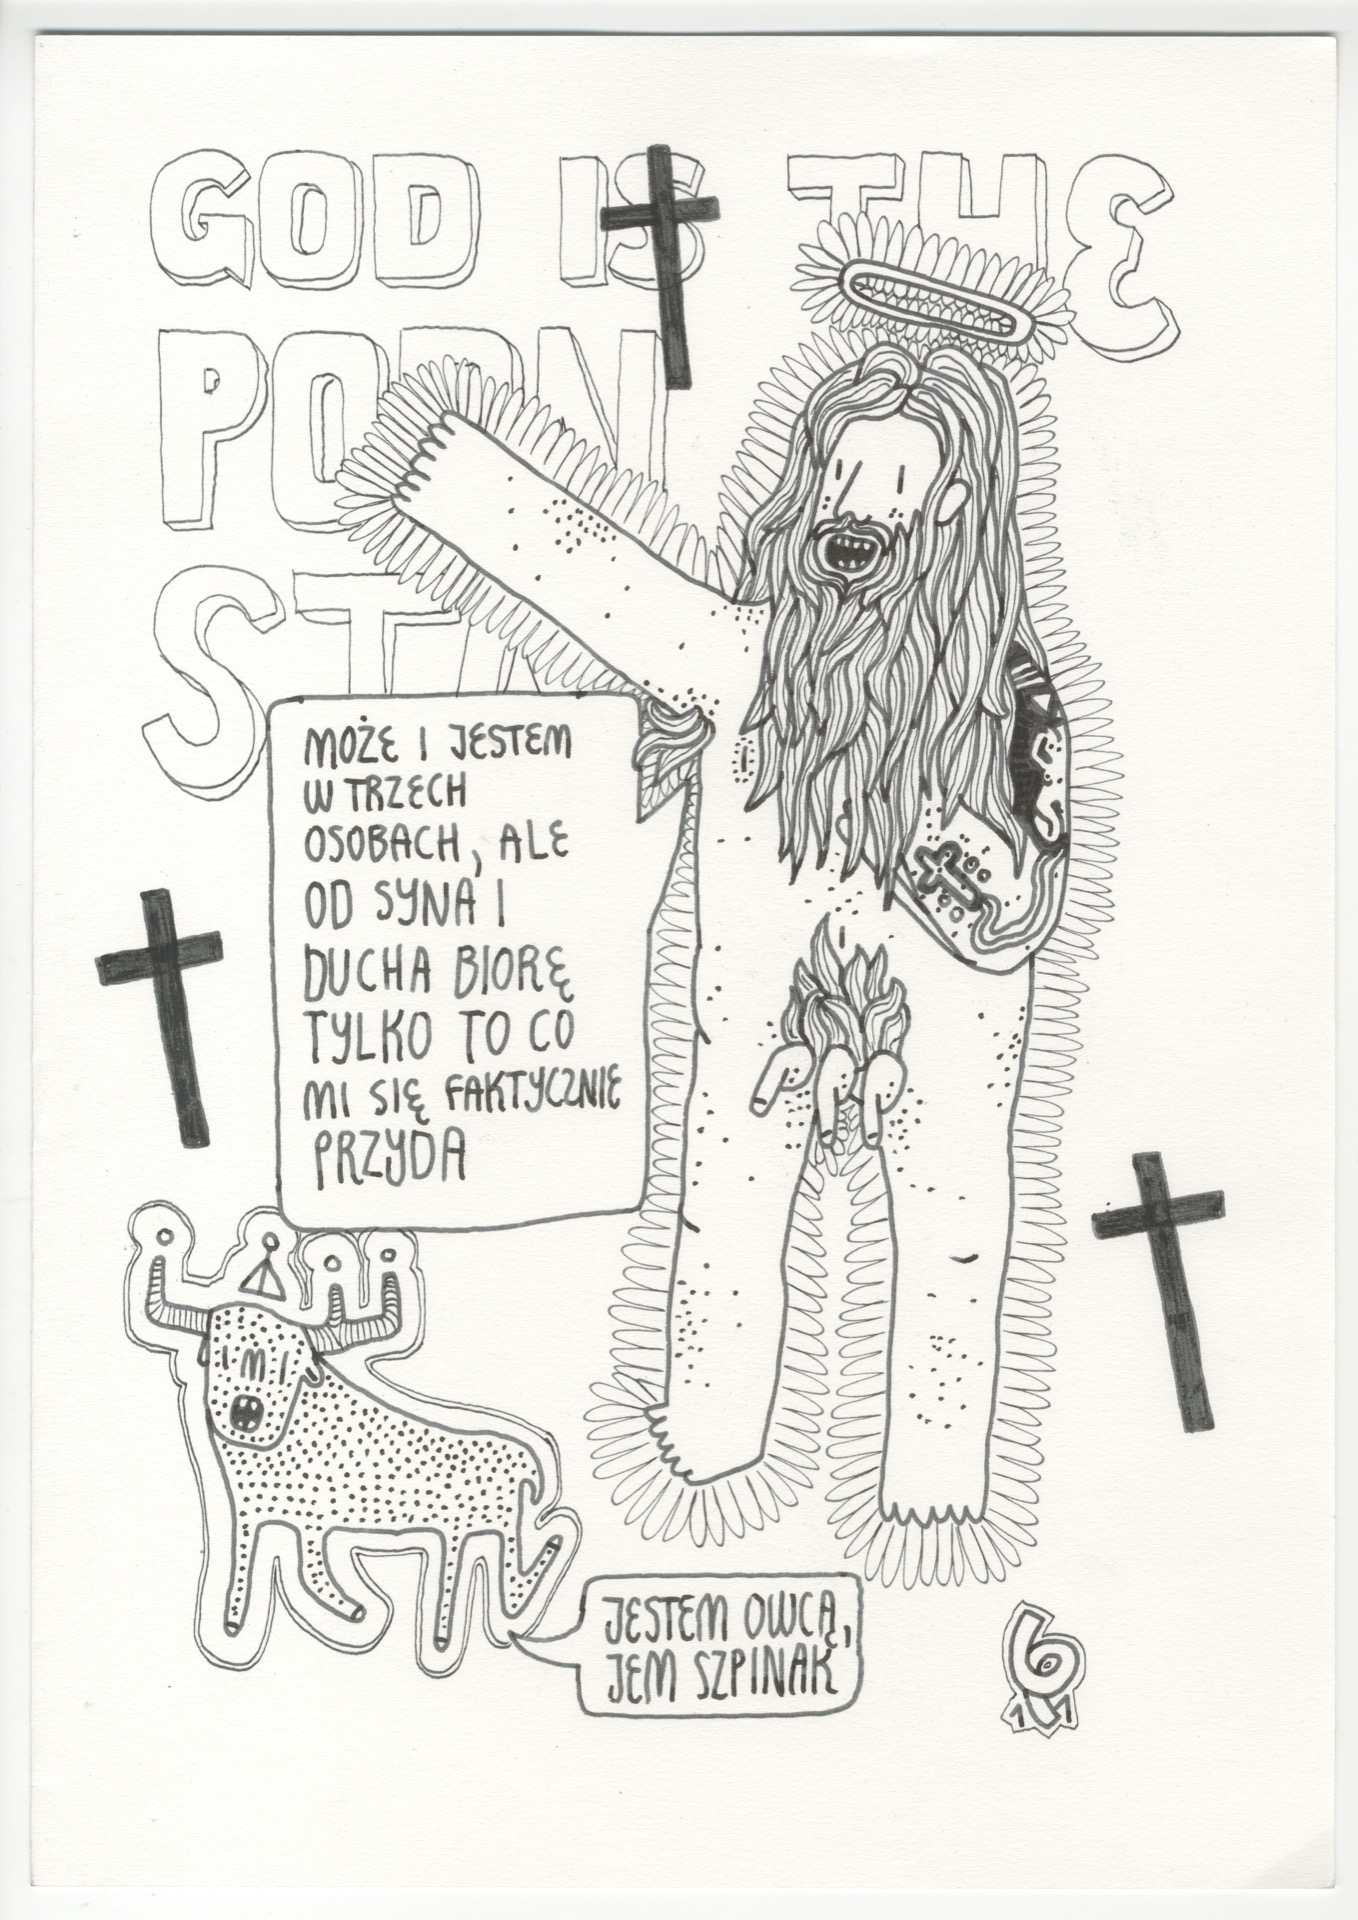 GOD IS THE
PORN
ST
MOŻE I JESTEM
W TRZECH
OSOBACH, ALE
OD SYNA I
DUCHA BIORĘ
TYLKO TO CO
MI SIĘ FAKTYCZNIE
PRZYDA
JESTEM OWCĄ,
JEM SZPINAK